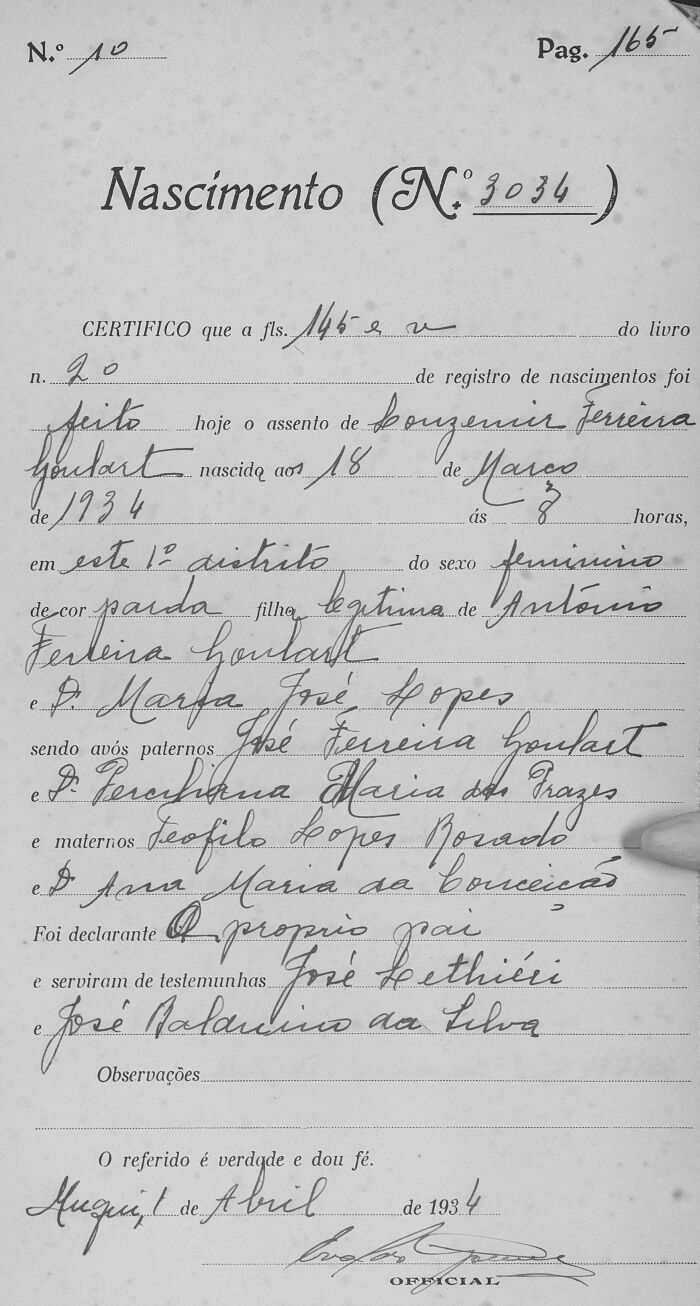 N.º 10 Pag. 165
Nascimento (N.º 3034)
CERTIFICO que a fls. 145 e v do livro
n. 20 de registro de nascimentos foi
feito hoje o assento de Louzemir Ferreira
Goulart nascida aos 18 de Março
de 1934 ás 8 horas,
em este 1º distrito do sexo feminino
de cor parda filha legitima de António
Ferreira Goulart
e D. Maria José Lopes
sendo avós paternos José Ferreira Goulart
e D. Perciliana Maria dos Prazes
e maternos Teofilo Lopes Rosado
e D. Ana Maria da Conceição
Foi declarante O proprio pai
e serviram de testemunhas José Lethiéri
e José Balduino da Silva
Observações
O referido é verdade e dou fé.
Muqui, 1 de Abril de 1934
OFFICIAL